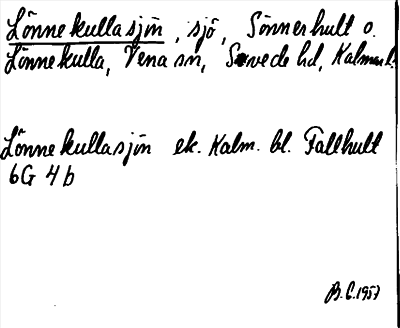 Lönnekullasjön, sjö, Sönnerhult o.
Lönnekulla, Vena sn, Sevede hd, Kalmar l.
Lönnekullasjön ek. Kalm. bl. Fallhult
6G 4b
B.C. 1957